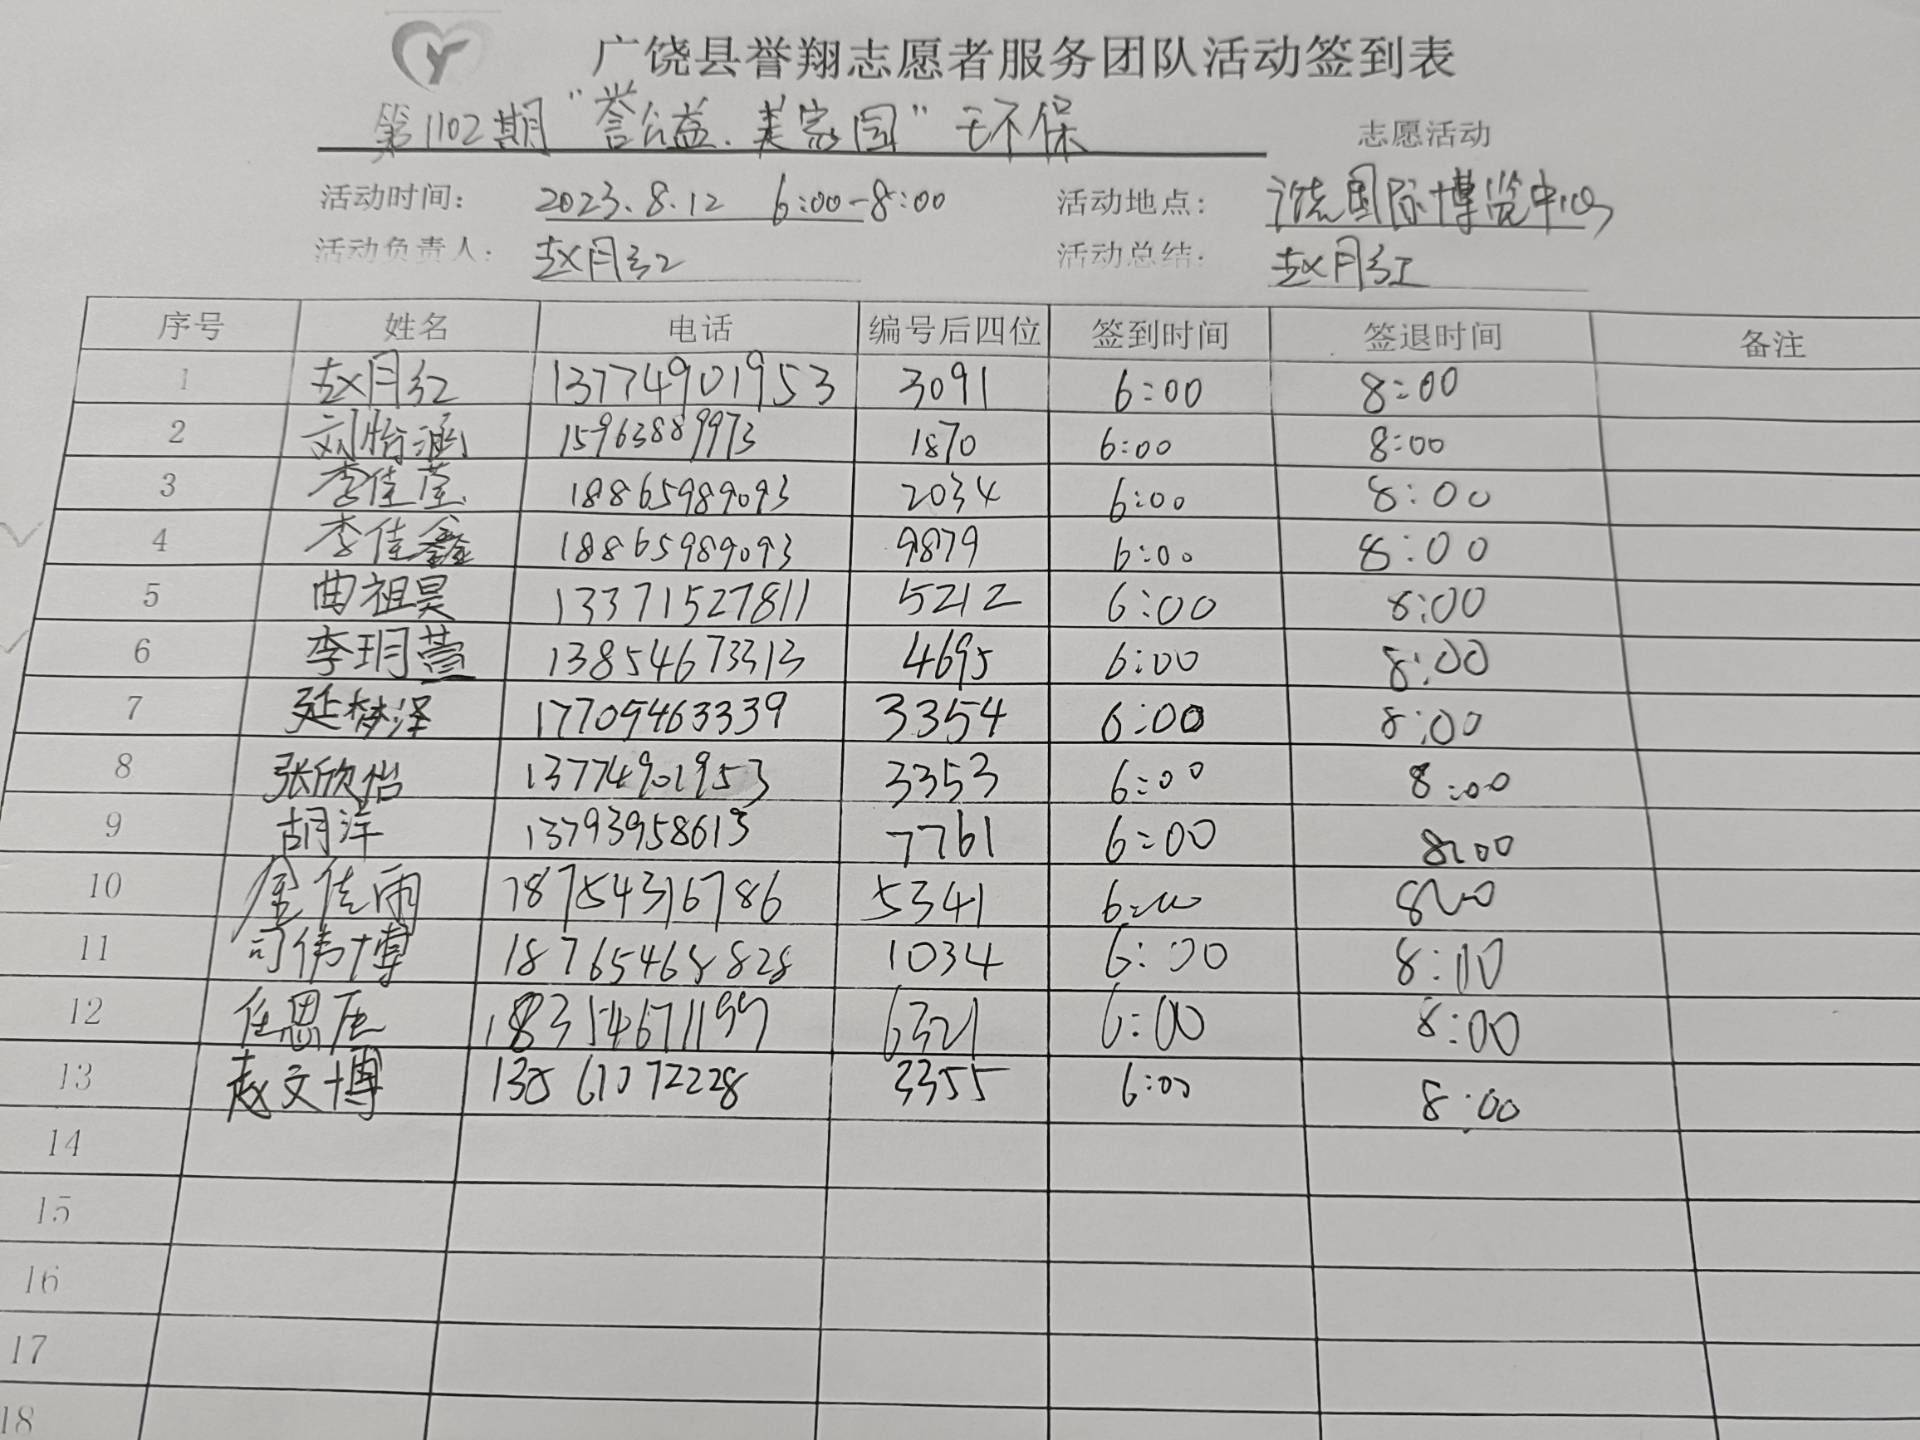 广饶县誉翔志愿者服务团队活动签到表
第1102期“誉公益.美家园”环保 志愿活动
活动时间: 2023.8.12 6:00-8:00 活动地点: 国际博览中心
活动负责人: 赵月红 活动总结: 赵月红
序号 姓名 电话 编号后四位 签到时间 签退时间 备注
1 赵月红 13774901953 3091 6:00 8:00
2 刘怡涵 15963889973 1870 6:00 8:00
3 李佳莹 18865989093 2034 6:00 8:00
4 李佳鑫 18865989093 9879 6:00 8:00
5 曲祖昊 13371527811 5212 6:00 8:00
6 李玥萱 13854673313 4695 6:00 8:00
7 延梦泽 17709463339 3354 6:00 8:00
8 张欣怡 13774901953 3353 6:00 8:00
9 胡洋 13793958613 7761 6:00 8:00
10 金佳雨 18754316786 5341 6:00 8:00
11 司伟博 18765468828 1034 6:00 8:00
12 任思 18354671199 6321 6:00 8:00
13 赵文博 13561072228 3355 6:00 8:00
14
15
16
17
18